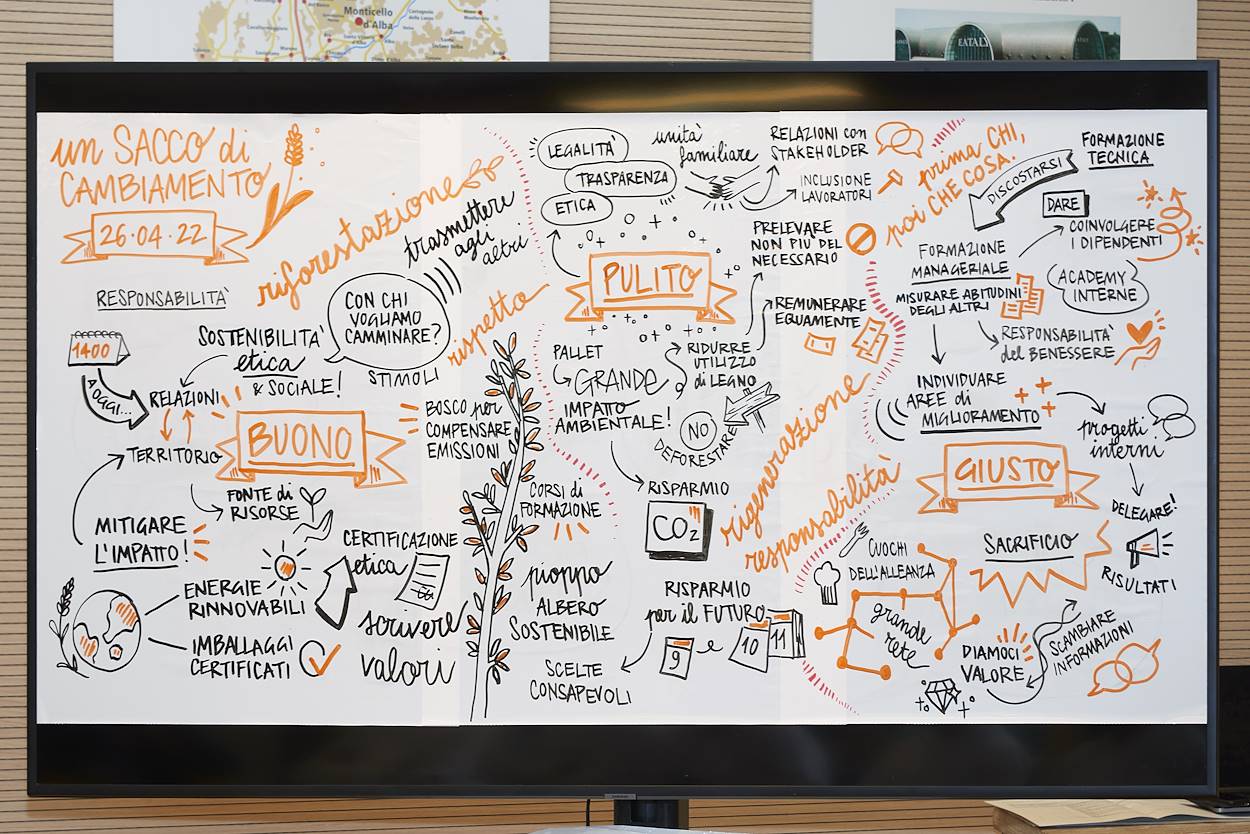 Monticello
d'Alba
EATALY
un SACCO di
CAMBIAMENTO
26·04·22
riforestazione
RESPONSABILITÀ
1400
A OGGI...
SOSTENIBILITÀ
etica
& SOCIALE!
RELAZIONI
TERRITORIO
BUONO
CON CHI
VOGLIAMO
CAMMINARE?
STIMOLI
trasmettere
agli
altri
rispetto
FONTE di
RISORSE
MITIGARE
L'IMPATTO!
ENERGIE
RINNOVABILI
IMBALLAGGI
CERTIFICATI
CERTIFICAZIONE
etica
scrivere
valori
BOSCO per
COMPENSARE
EMISSIONI
CORSI di
FORMAZIONE
pioppo
ALBERO
SOSTENIBILE
SCELTE
CONSAPEVOLI
LEGALITÀ
TRASPARENZA
ETICA
unità
familiare
RELAZIONI con
STAKEHOLDER
INCLUSIONE
LAVORATORI
PULITO
PRELEVARE
NON PIU' DEL
NECESSARIO
REMUNERARE
EQUAMENTE
PALLET
GRANDE
IMPATTO
AMBIENTALE!
RIDURRE
UTILIZZO
di LEGNO
NO
DEFORESTARE
RISPARMIO
CO2
RISPARMIO
per il FUTURO
9 e 10 11
rigenerazione
responsabilità
prima CHI,
poi CHE COSA.
DISCOSTARSI
FORMAZIONE
TECNICA
DARE
COINVOLGERE
I DIPENDENTI
FORMAZIONE
MANAGERIALE
ACADEMY
INTERNE
MISURARE ABITUDINI
DEGLI ALTRI
RESPONSABILITÀ
del BENESSERE
INDIVIDUARE
AREE di
MIGLIORAMENTO
progetti
interni
GIUSTO
DELEGARE!
RISULTATI
SACRIFICIO
CUOCHI
DELL'ALLEANZA
grande
rete
DIAMOCI
VALORE
SCAMBIARE
INFORMAZIONI